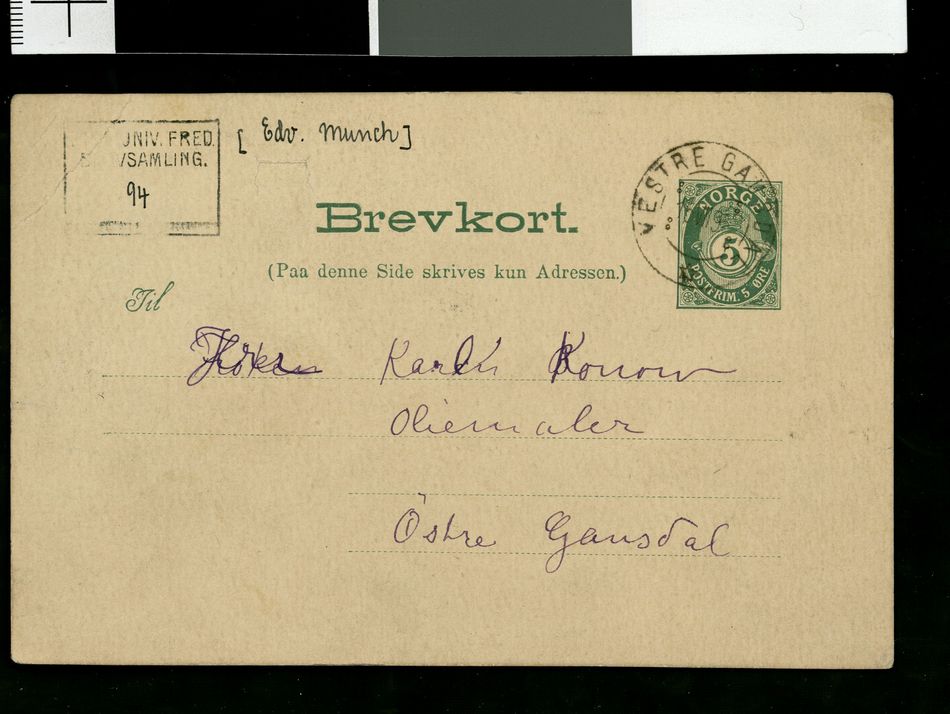 UNIV. FRED.
VSAMLING.
94
[Edv. Munch]
VESTRE GA
NORGE
5
POSTFRIM. 5 ØRE
Brevkort.
(Paa denne Side skrives kun Adressen.)
Til
Karl Konow
Oliemaler
Östre Gausdal